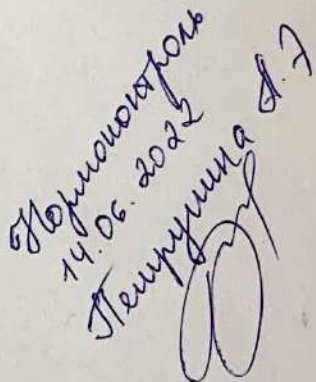 Нормоконтроль
14.06.2022
Петрушина А.Э